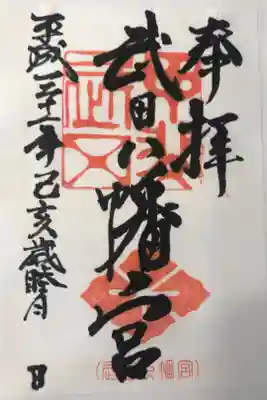 奉拝
武田八幡宮
平成三十一年己亥歳睦月 日
(武田八幡宮)